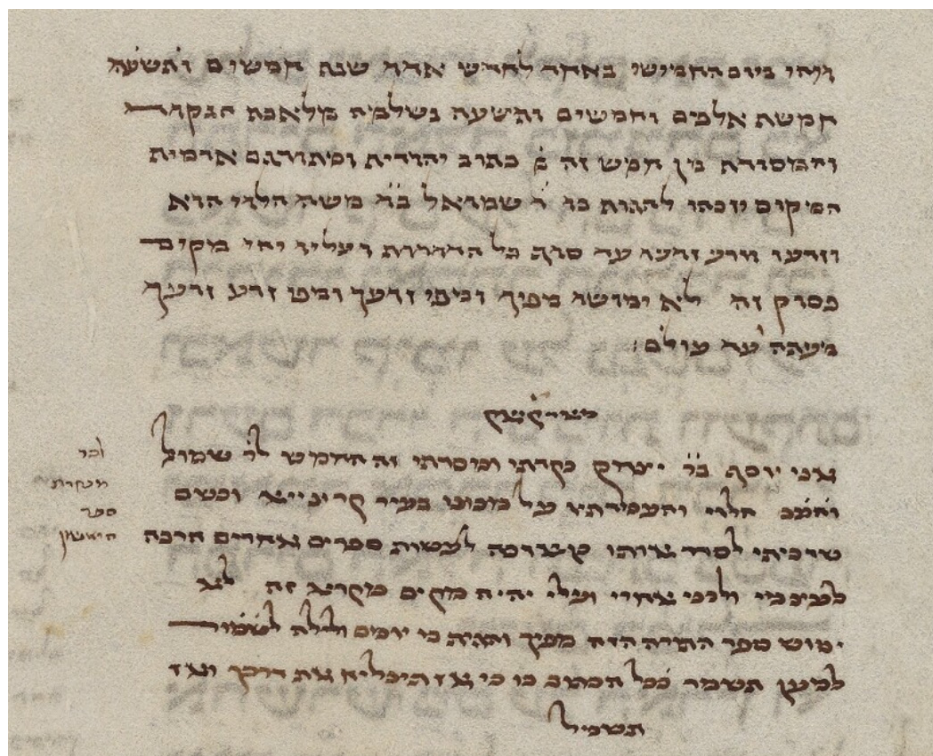 ויהי ביום החמישי באחד לחדש אדר שנת חמשים ותשעה
חמשת אלפים וחמשים ותשעה נשלמה מלאכת הנקוד
והמסורת מן חמש זה כתוב יהודית ומתורגם ארמית
המיקום יזכהו להגות בו ר שמואל בר משה הלוי הוא
וזרעו וזרע זרעו עד סוף כל הדורות ועליו יהי מקוים
פסוק זה לא ימושו מפיך ומפי זרעך ומפי זרע זרעך
מעתה ועד עולם
אני יוסף בר נקדתי ומסרתי זה החומש לר שמואל
הלוי והעמדתיו על מכונו בעיר וכשם
שזכיתי לסדר אותו לעשות ספרים אחרים הרבה
לעצמי ולבני אחרי ועלי יהיה מקוים מקרא זה לא
ימוש ספר התורה הזה מפיך והגית בו יומם ולילה לשמור
למען תשמר ככל הכתוב בו כי אז תצליח את דרכך ואז
תשכיל
ספר
הראשון